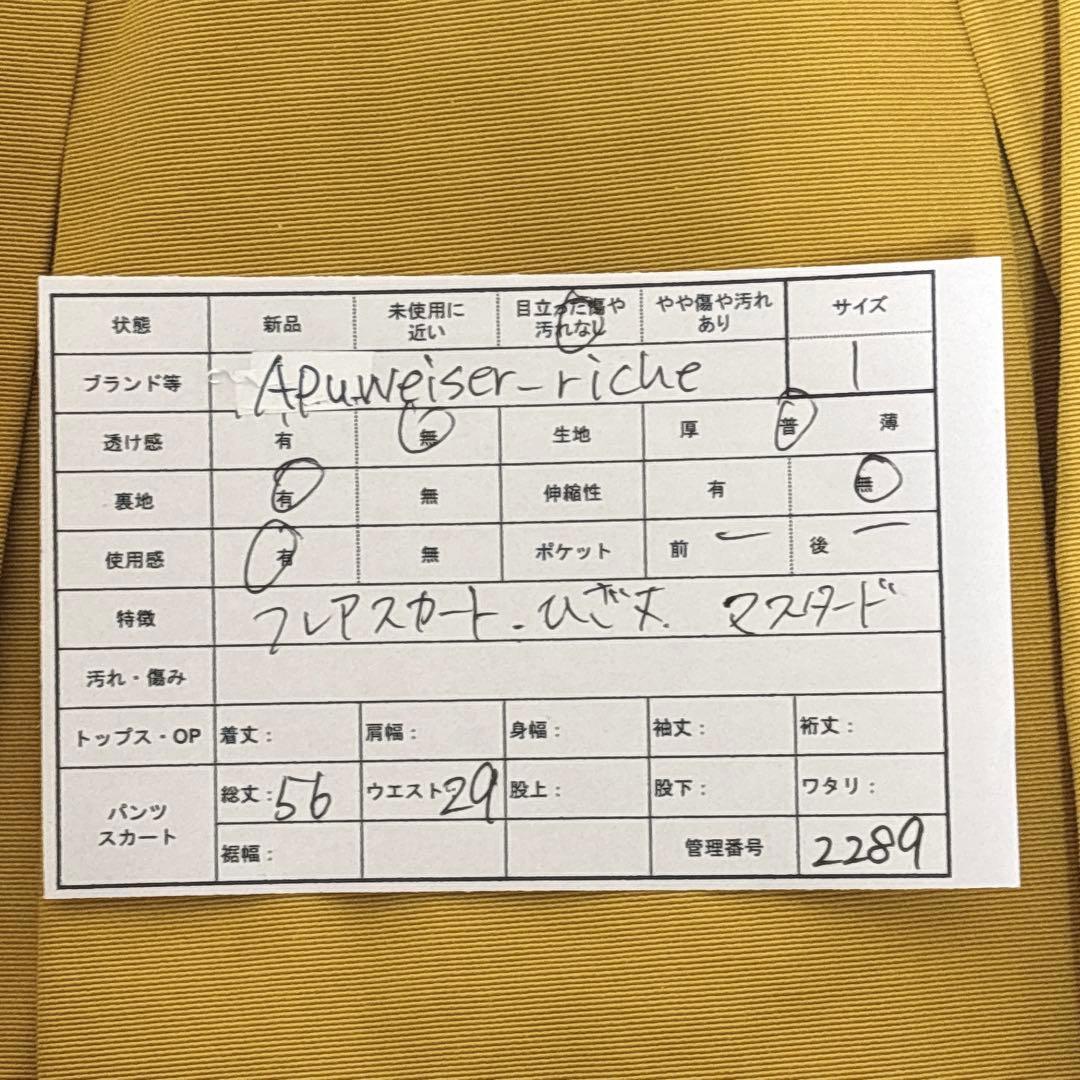 状態 新品 未使用に近い 目立った傷や汚れなし やや傷や汚れあり サイズ
ブランド等 Apuweiser-riche 1
透け感 有 無 生地 厚 普 薄
裏地 有 無 伸縮性 有 無
使用感 有 無 ポケット 前 ー 後 ー
特徴 フレアスカート. ひざ丈. マスタード
汚れ・傷み
トップス・OP 着丈: 肩幅: 身幅: 袖丈: 裄丈:
パンツ スカート 総丈:56 ウエスト:29 股上: 股下: ワタリ:
裾幅: 管理番号 2289